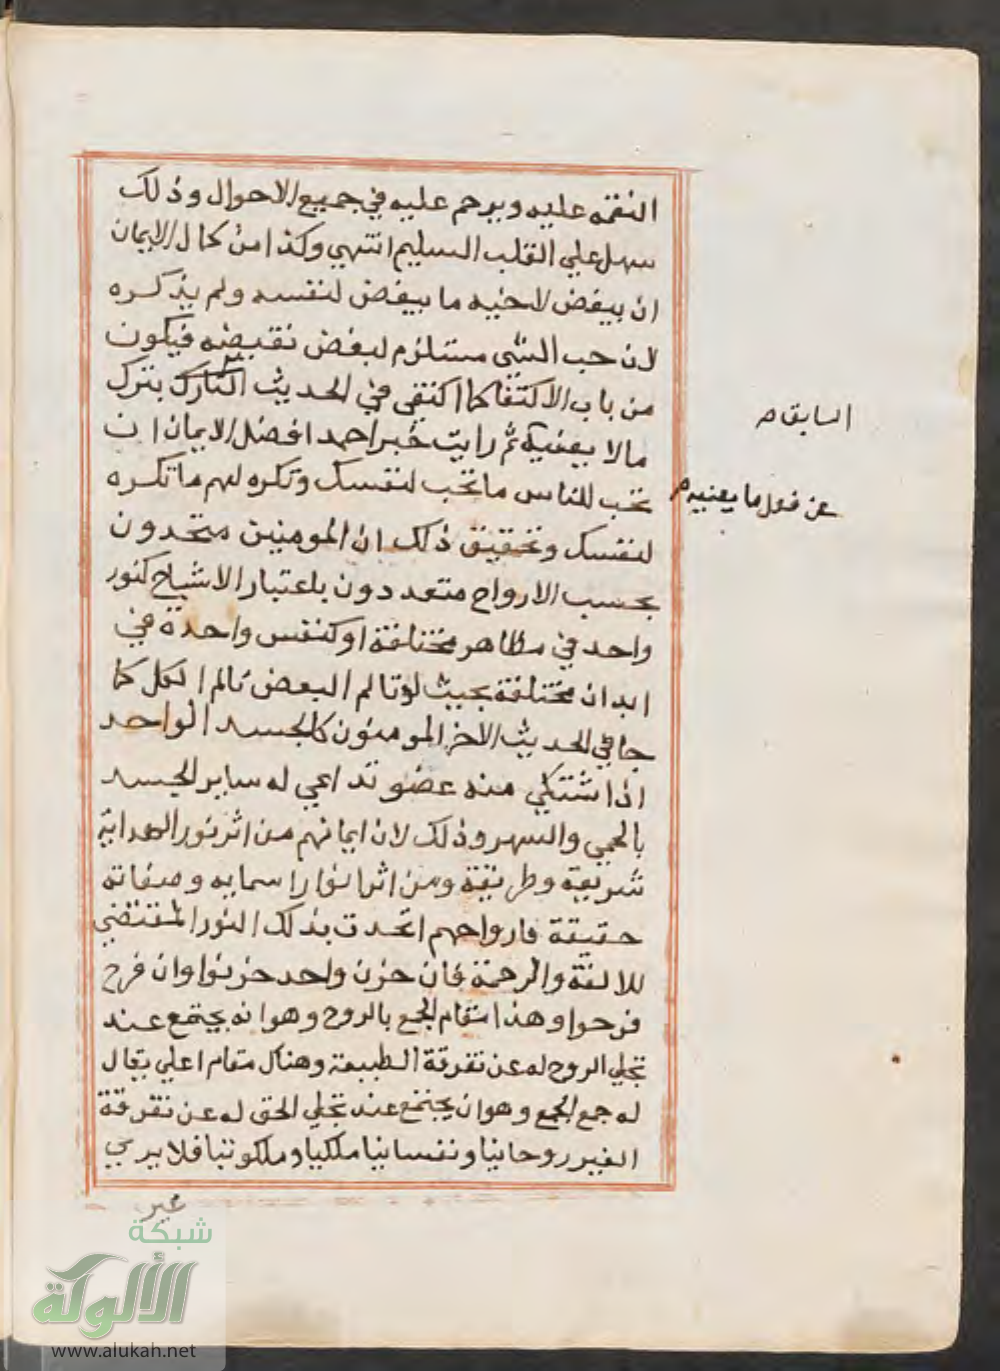 النقمه عليه ويرحم عليه في جميع الاحوال وذلك
سهل علي القلب السليم انتهي وكذا من كمال الايمان
ان يبغض لاخيه ما يبغض لنفسه ولم يذكره
لان حب الشي مستلزم لبغض نقيضه فيكون
من باب الاكتفا كما اكتفي في الحديث التارك بترك
السابق
مالا يعنيه ثم رايت خبر احمد افضل الايمان ان
تحب للناس ما تحب لنفسك وتكره لهم ما تكره
عن فعل ما يعنيه
لنفسك وتحقيق ذلك ان المومنين متحدون
بحسب الارواح متعددون باعتبار الاشباح كنور
واحد في مظاهر مختلفة او كنفس واحدة في
ابدان مختلفة بحيث لو تالم البعض تالم الكل كما
جا في الحديث الاخر المومنون كالجسد الواحد
اذا اشتكي منه عضو تداعي له ساير الجسد
بالحمي والسهر وذلك لان ايمانهم من اثر نور الهداية
شريعة وطريقة ومن اثر انوار اسمايه وصفاته
حقيقة فارواحهم اتحدت بذلك النور المقتضي
للالفة والرحمة فان حزن واحد حزنوا وان فرح
فرحوا وهذا مقام الجمع بالروح وهو انه يجتمع عند
تجلي الروح له عن تفرقة الطبيعة وهناك مقام اعلي يقال
له جمع الجمع وهو ان يجتمع عند تجلي الحق له عن تفرقة
الغير روحانيا ونفسانيا ملكيا وملكوتيا فلا يري
غير
شبكة
الألوكة
www.alukah.net